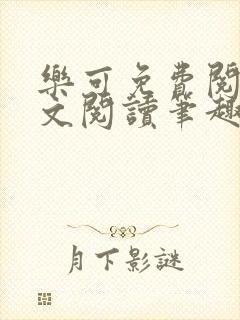 樂可免費閱
文閱讀筆趣
月下影謎